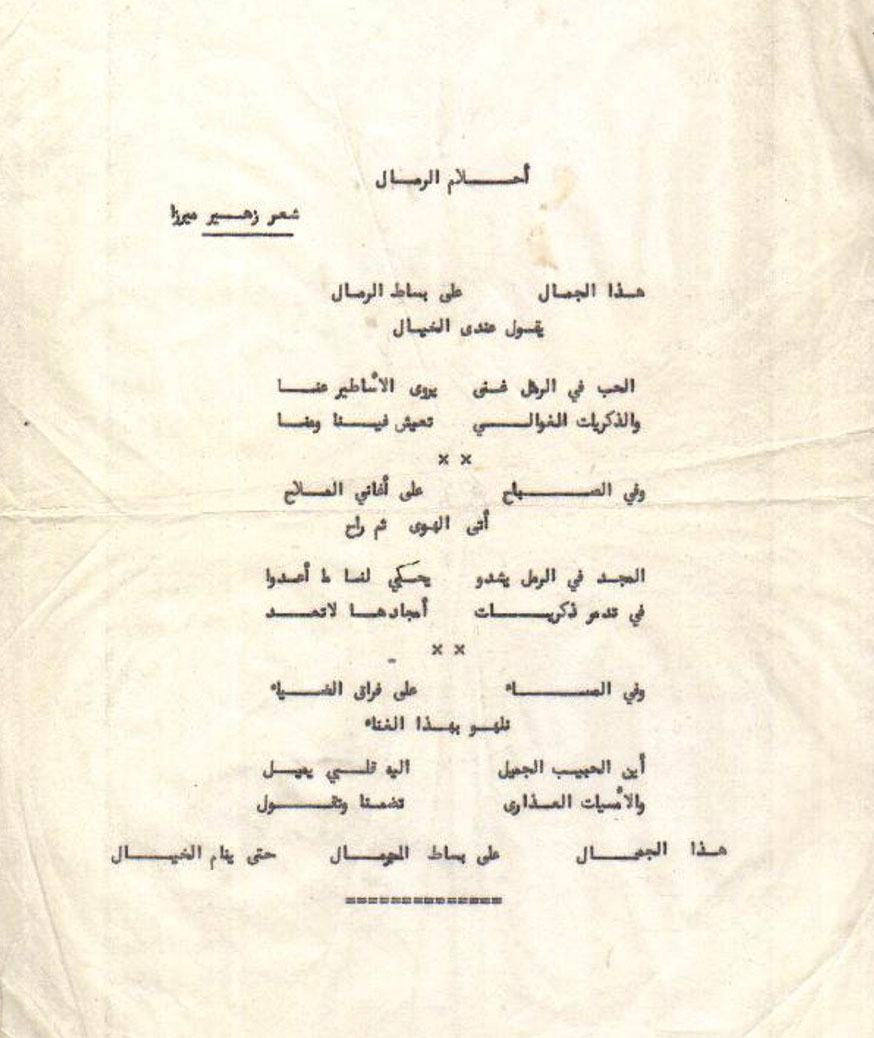 أحلام الرمال
شعر زهير ميرزا
هذا الجمال على بساط الرمال
يقول عندى الخيال
الحب في الرمل غنى يروى الأساطير عنا
والذكريات الغوالي تعيش فينا ومنا
× ×
وفي الصباح على أغاني الملاح
أتى الهوى ثم راح
المجد في الرمل يشدو يحكي لنا ما أعدوا
في تدمر ذكريات أمجادها لاتعد
× ×
وفي المساء على فراق الضياء
نلهو بهذا الغناء
أين الحبيب الجميل اليه قلبي يميل
والأمسيات العذارى تضمنا وتقول
هذا الجمال على بساط الرمال حتى ينام الخيال
==============